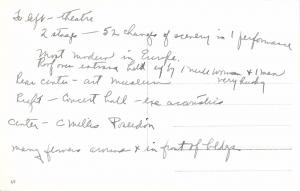 To left - theatre
2 straps - 52 changes of scenery in 1 performance
Most modern in Europe.
Roof over entrance held up by 1 nude woman & 1 man
very husky
Rear center - art museum
Right - Concert hall - eve acoustics
Center - C Milles Poseidon
many flowers around & in front of bldgs